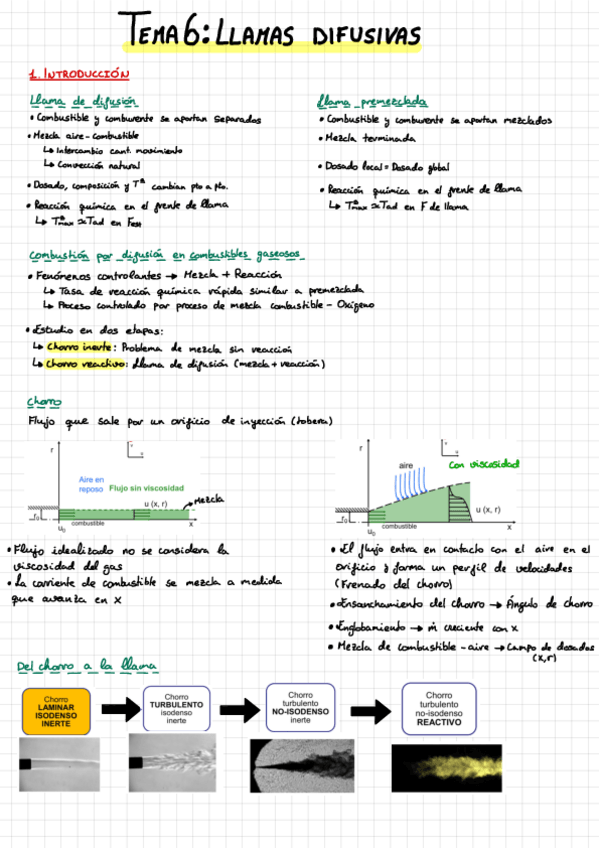 TEMA 6: LLAMAS DIFUSIVAS
1. INTRODUCCIÓN
Llama de difusión
• Combustible y comburente se aportan separados
• Mezcla aire-combustible
↳ Intercambio cant. movimiento
↳ Convección natural
• Dosado, composición y Tª cambian pto a pto.
• Reacción química en el frente de llama
↳ Tªmax ≈ Tad en Fest
Llama premezclada
• Combustible y comburente se aportan mezclados
• Mezcla terminada
• Dosado local = Dosado global
• Reacción química en el frente de llama
↳ Tªmax ≈ Tad en F de llama
Combustión por difusión en combustibles gaseosos
• Fenómenos controlantes → Mezcla + Reacción
↳ Tasa de reacción química rápida similar a premezclada
↳ Proceso controlado por proceso de mezcla combustible - Oxígeno
• Estudio en dos etapas:
↳ Chorro inerte: Problema de mezcla sin reacción
↳ Chorro reactivo: Llama de difusión (mezcla + reacción)
Chorro
Flujo que sale por un orificio de inyección (tobera)
r
Aire en
reposo
Flujo sin viscosidad
u (x, r)
Mezcla
r0
u0
combustible
x
r
aire
Con viscosidad
u (x, r)
r0
u0
combustible
x
• Flujo idealizado no se considera la
viscosidad del gas
• La corriente de combustible se mezcla a medida
que avanza en x
• El flujo entra en contacto con el aire en el
orificio y forma un perfil de velocidades
(Frenado del chorro)
• Ensanchamiento del chorro → Ángulo de chorro
• Englobamiento → ṁ creciente con x
• Mezcla de combustible - aire → Campo de dosados
(x,r)
Del chorro a la llama
Chorro
LAMINAR
ISODENSO
INERTE
Chorro
TURBULENTO
isodenso
inerte
Chorro
turbulento
NO-ISODENSO
inerte
Chorro
turbulento
no-isodenso
REACTIVO